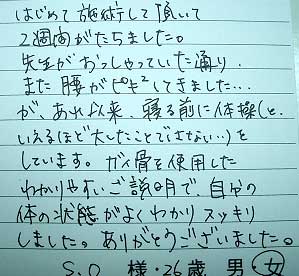 はじめて施術して頂いて
2週間がたちました。
先生がおっしゃっていた通り、
また腰がピキピキしてきました…
が、あれ以来、寝る前に体操(と、
いえるほど大したことできない…)を
しています。ガイ骨を使用した
わかりやすいご説明で、自分の
体の状態がよくわかりスッキリ
しました。ありがとうございました。
S.O 様・26歳 男 女